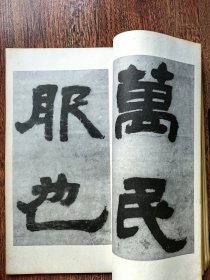 萬民
服也